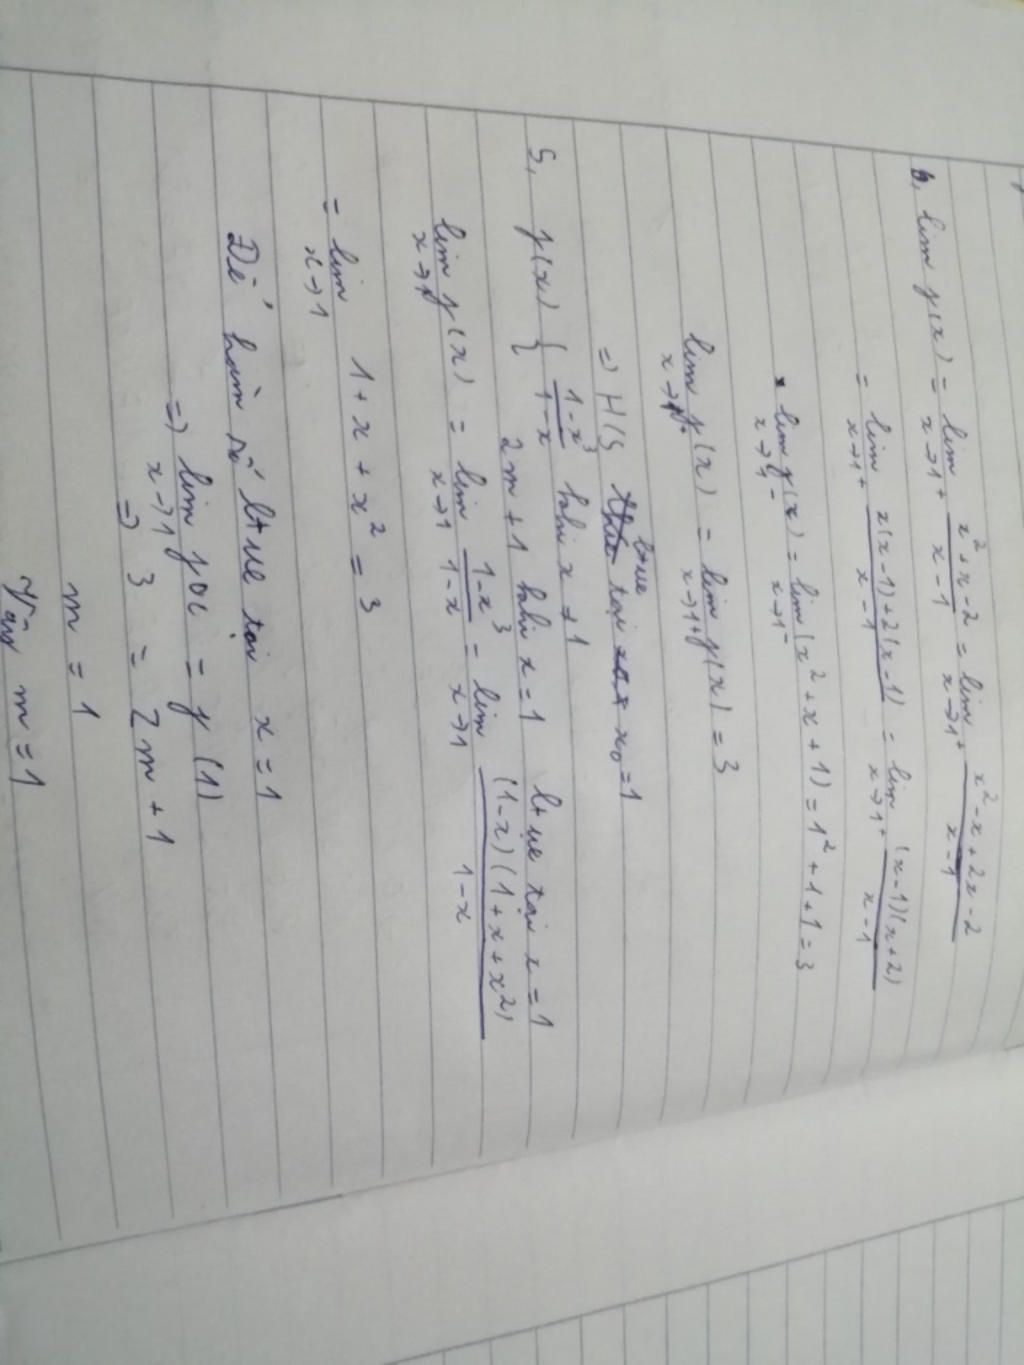 b, lim f(x) = lim x→1+ x²+x-2 / x-1 = lim x→1+ x²-x+2x-2 / x-1
= lim x→1+ x(x-1)+2(x-1) / x-1 = lim x→1+ (x-1)(x+2) / x-1
• lim x→1- f(x) = lim x→1- (x²+x+1) = 1²+1+1=3
lim x→1+ f(x) = lim x→1+ f(x) = 3
=) H/S ltục tại x₀=1
5, f(x) { 1-x³ / 1-x khi x ≠ 1
2m+1 khi x=1 ltục tại x=1
lim x→1 f(x) = lim x→1 1-x³ / 1-x = lim x→1 (1-x)(1+x+x²) / 1-x
= lim x→1 1+x+x² = 3
Để hàm số ltục tại x=1
=) lim x→1 = f(1)
=) 3 = 2m+1
m = 1
Vậy m=1